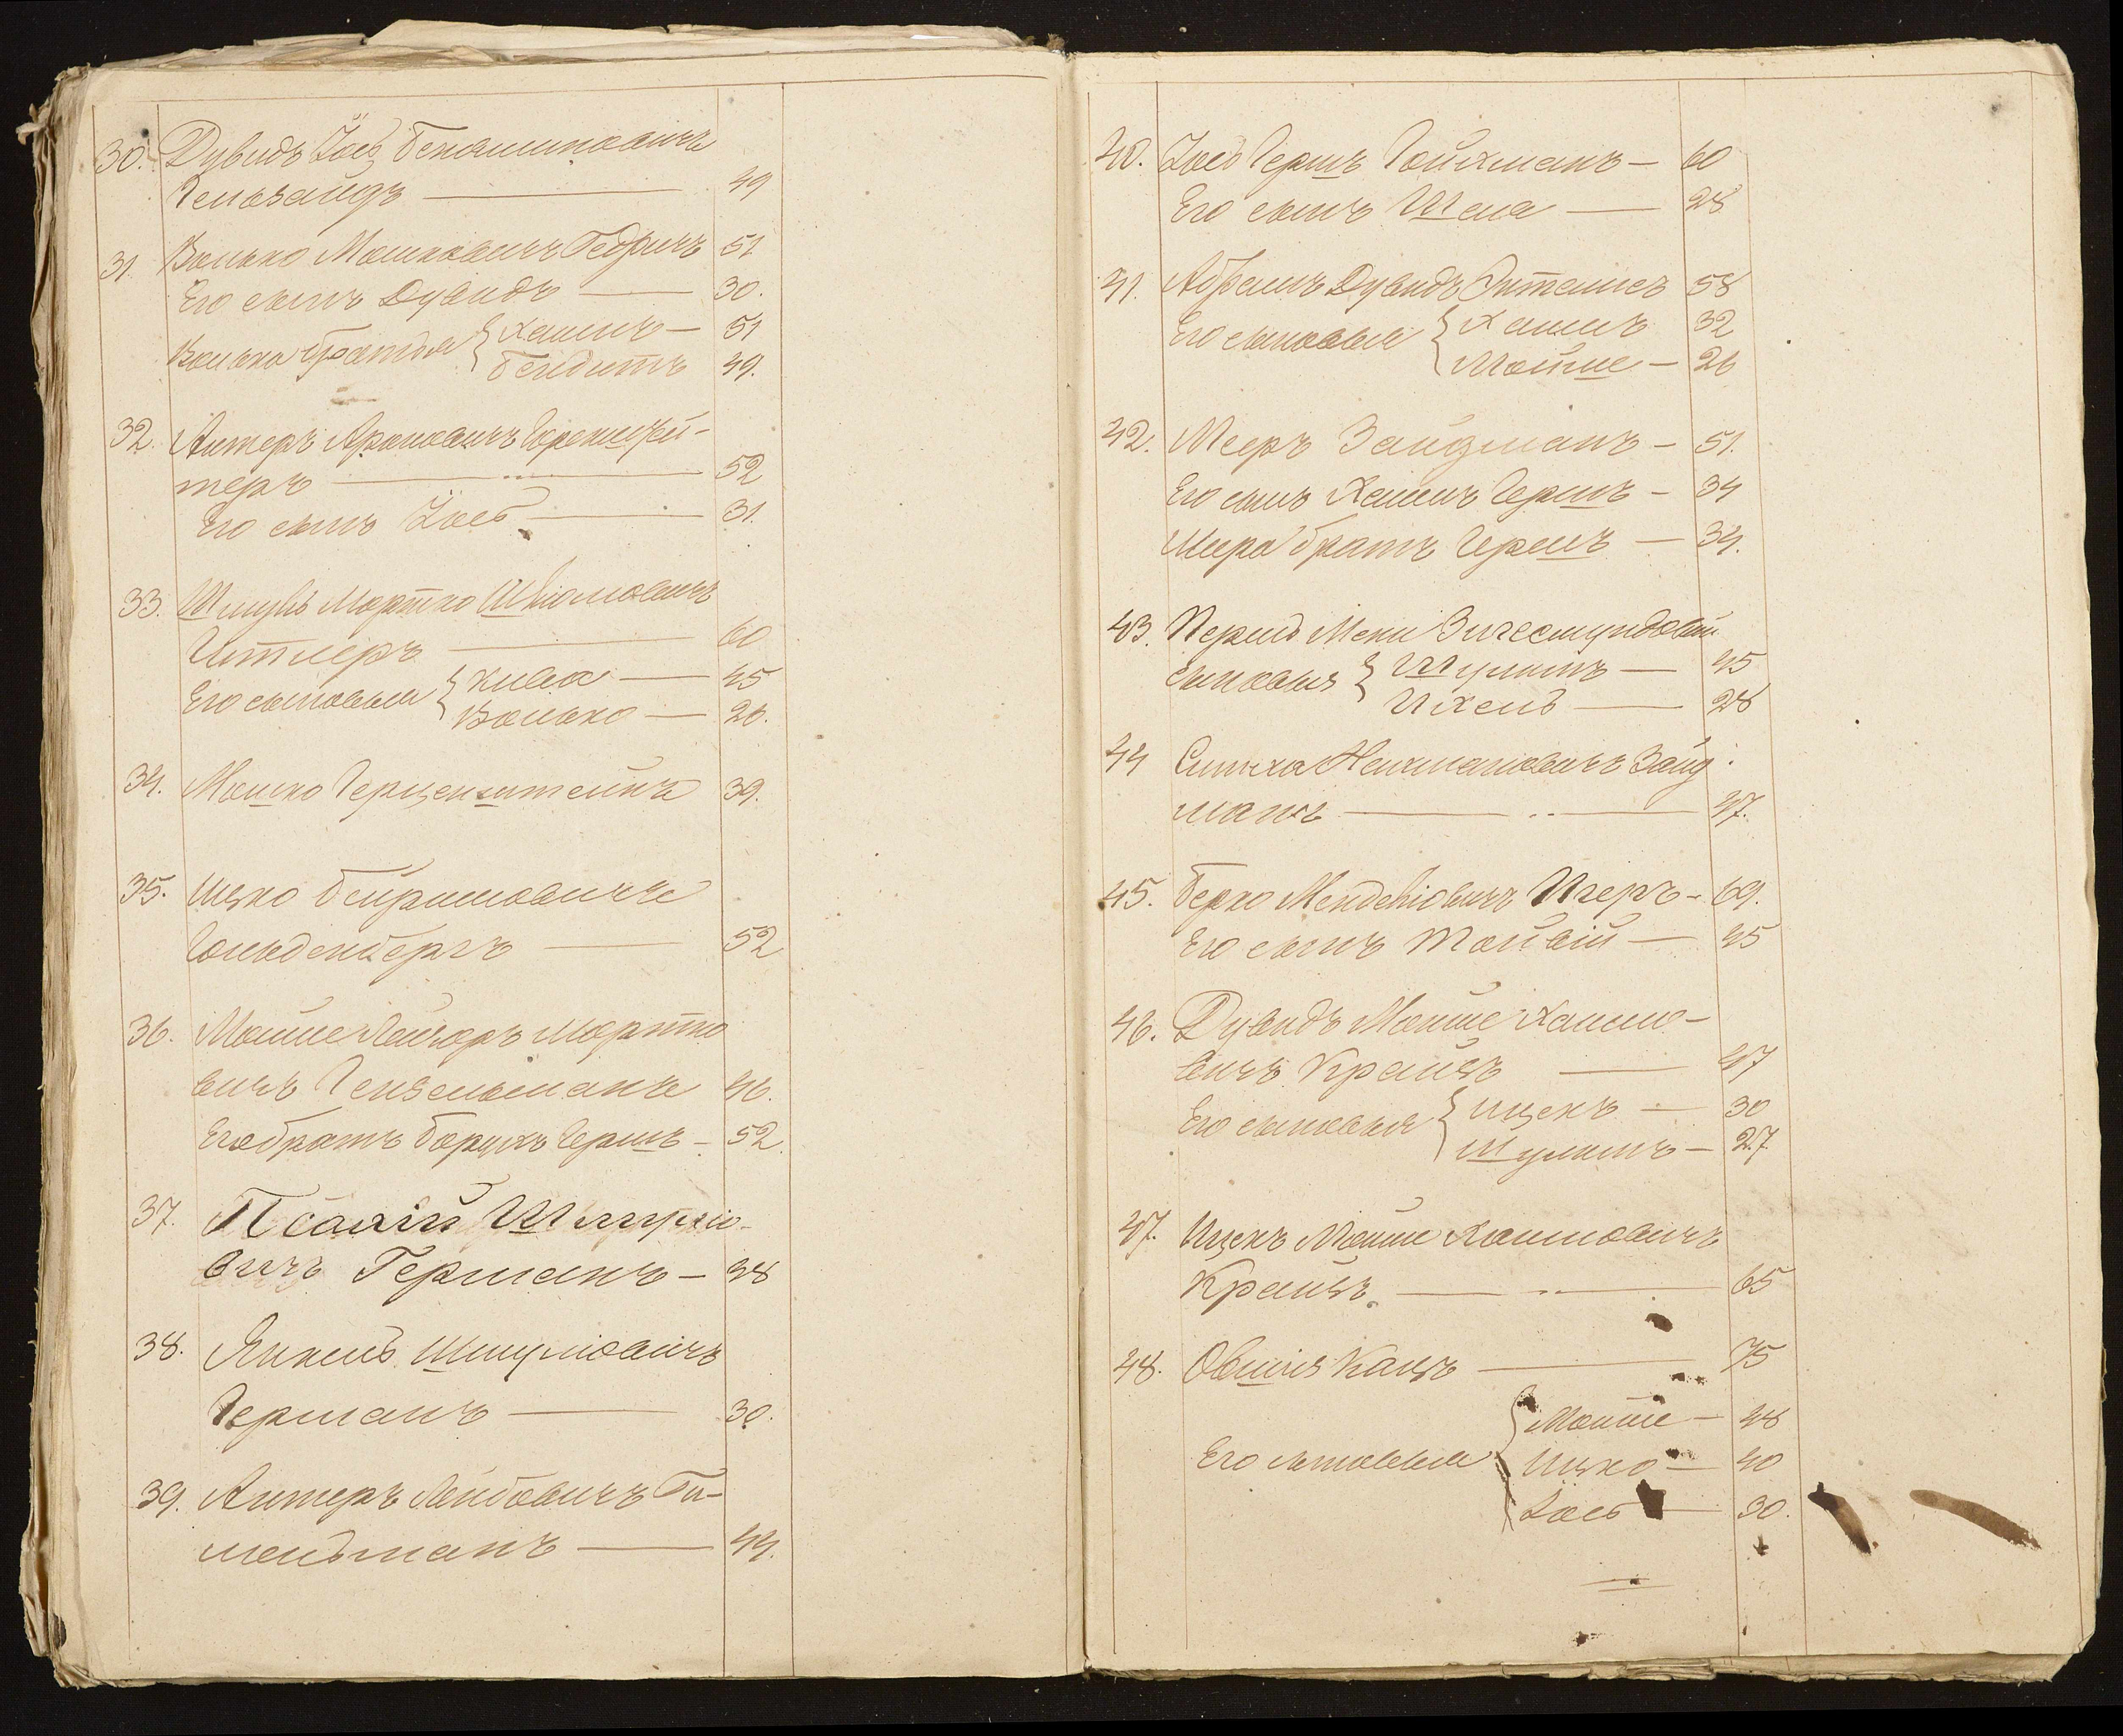 30. Дувидъ Іосъ Беняминовичъ
Гельзайдъ — 49
31. Волько Мошковичъ Гедричъ 51
Его сынъ Дувидъ — 30.
Волька братья { Хаимъ — 51
Бендитъ 49.
32. Алтеръ Ароновичъ Горенштей-
теръ — 52
Его сынъ Іосъ — 31.
33. Шмуль Мортко Шліомовичъ
Гитлеръ — 60
Его сыновья { Кива — 45
Волько — 26.
34. Мошко Герценштейнъ 39.
35. Ицко Бейришовичъ
Гольденбергъ — 52
36. Мойше Лейзоръ Мортко
вичъ Гензельманъ 46.
Его братъ Борухъ Гершъ — 52.
37. Псахій Шмуліо-
вичъ Германъ — 38
38. Янкель Шмуліовичъ
Германъ — 30.
39. Алтеръ Лейбовичъ Ги-
мельманъ — 44.
40. Іосъ Гершъ Гойхманъ — 60
Его сынъ Шая — 28
41. Абрамъ Дувидъ 58
Его сыновья { Хаимъ 32
Мойше — 26
42. Мееръ Зайдманъ — 51.
Его сынъ Хаимъ Гершъ — 34
Меера братъ Гершъ — 34.
43. Першъ Мени
сыновья { Шулимъ — 45
Ихель — 28
44 Симха Нахмановичъ Зайд
манъ — 47.
45. Берко Менделіовичъ Игеръ — 69.
Его сынъ Товій — 45
46. Дувидъ Мойше Хаимо-
вичъ Крайзъ — 47
Его сыновья { Ицекъ — 30
Шулимъ — 27
47. Ицекъ Мойше Хаимовичъ
Крайзъ — 65
48. Овшія Кацъ — 75
Его сыновья { Мойше — 48
Ицко — 40
Іосъ — 30.